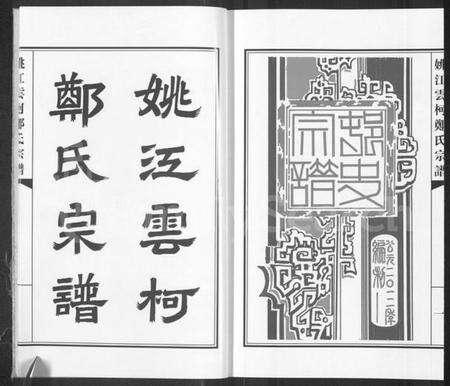 姚江雲柯鄭氏宗譜
一
宗譜
公元二〇一二年
姚江雲柯
鄭氏宗譜
姚江雲柯鄭氏宗譜